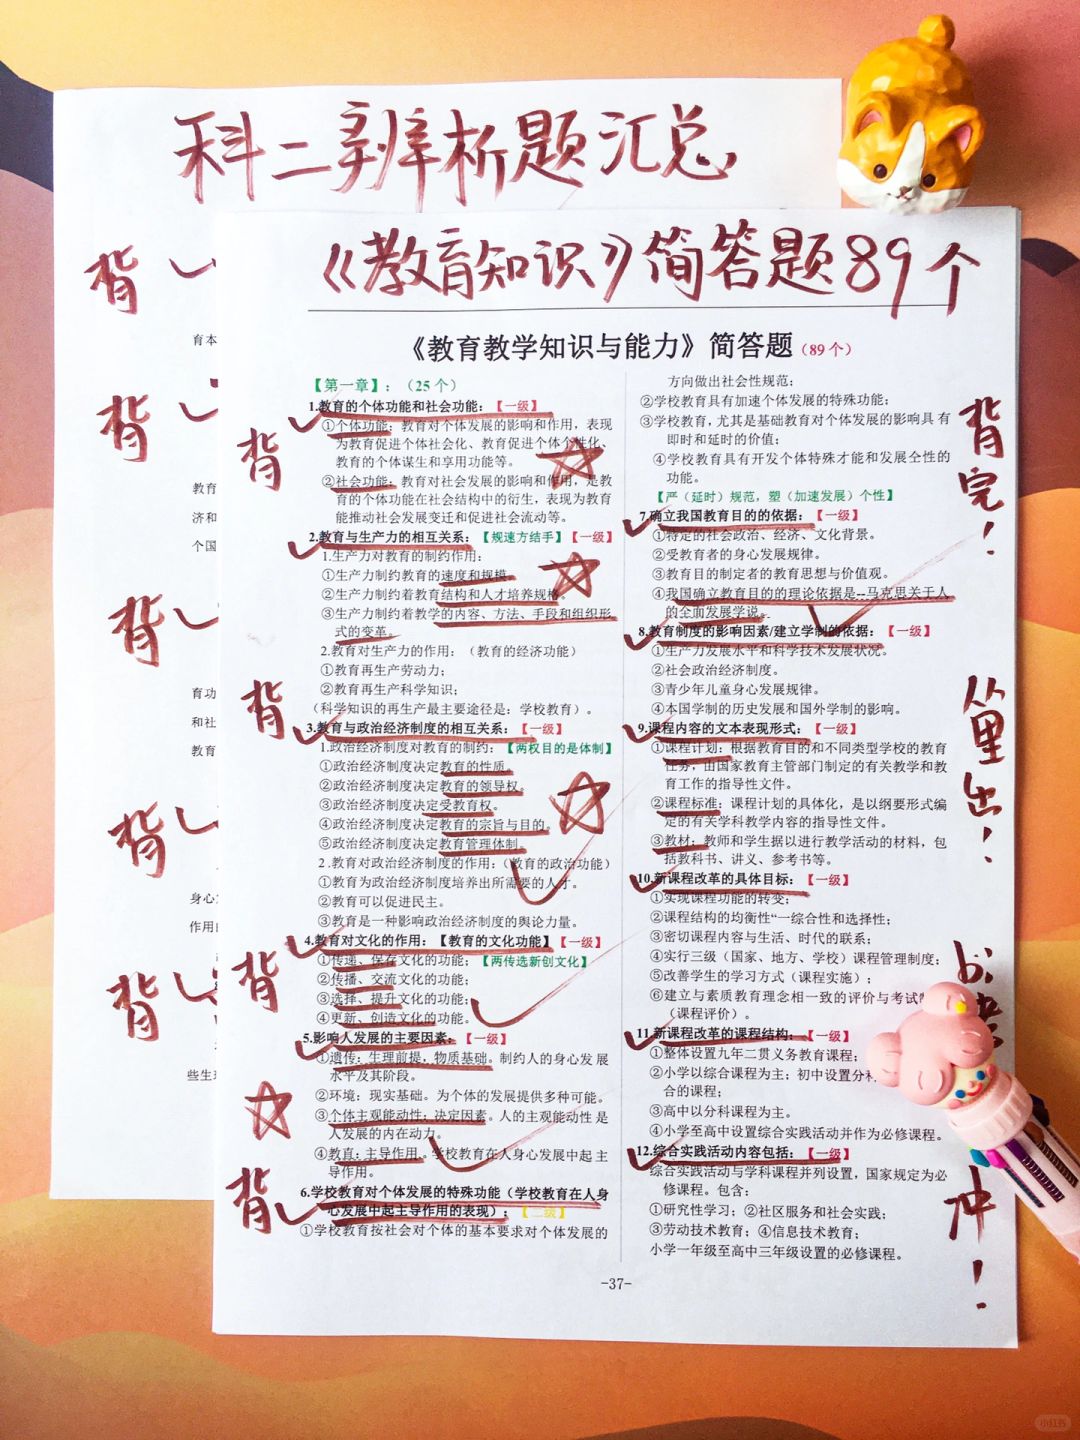 科二辨析题汇总
背
背
背
背
背
育本
教育
济和
个国
育功
和社
教育
身心
作用的
些生理
《教育知识》简答题89个
《教育教学知识与能力》简答题（89个）
【第一章】：（25个）
1.教育的个体功能和社会功能：【一级】
①个体功能：教育对个体发展的影响和作用，表现
为教育促进个体社会化、教育促进个体个性化、
教育的个体谋生和享用功能等。
②社会功能：教育对社会发展的影响和作用，是教
育的个体功能在社会结构中的衍生，表现为教育
能推动社会发展变迁和促进社会流动等。
2.教育与生产力的相互关系：【规速方结手】【一级】
1.生产力对教育的制约作用：
①生产力制约教育的速度和规模。
②生产力制约着教育结构和人才培养规格。
③生产力制约着教学的内容、方法、手段和组织形
式的变革。
2.教育对生产力的作用：（教育的经济功能）
①教育再生产劳动力；
②教育再生产科学知识；
（科学知识的再生产最主要途径是：学校教育）。
3.教育与政治经济制度的相互关系：【一级】
1.政治经济制度对教育的制约：【两权目的是体制】
①政治经济制度决定教育的性质。
②政治经济制度决定教育的领导权。
③政治经济制度决定受教育权。
④政治经济制度决定教育的宗旨与目的。
⑤政治经济制度决定教育管理体制。
2.教育对政治经济制度的作用：（教育的政治功能）
①教育为政治经济制度培养出所需要的人才。
②教育可以促进民主。
③教育是一种影响政治经济制度的舆论力量。
4.教育对文化的作用：【教育的文化功能】【一级】
①传递、保存文化的功能；【两传选新创文化】
②传播、交流文化的功能；
③选择、提升文化的功能；
④更新、创造文化的功能。
5.影响人发展的主要因素：【一级】
①遗传：生理前提，物质基础。制约人的身心发展
水平及其阶段。
②环境：现实基础。为个体的发展提供多种可能。
③个体主观能动性：决定因素。人的主观能动性是
人发展的内在动力。
④教育：主导作用。学校教育在人身心发展中起主
导作用。
6.学校教育对个体发展的特殊功能（学校教育在人身
心发展中起主导作用的表现）：【二级】
①学校教育按社会对个体的基本要求对个体发展的
方向做出社会性规范；
②学校教育具有加速个体发展的特殊功能；
③学校教育，尤其是基础教育对个体发展的影响具有
即时和延时的价值；
④学校教育具有开发个体特殊才能和发展个性的
功能。
【严（延时）规范，塑（加速发展）个性】
7.确立我国教育目的的依据：【一级】
①特定的社会政治、经济、文化背景。
②受教育者的身心发展规律。
③教育目的制定者的教育思想与价值观。
④我国确立教育目的的理论依据是--马克思关于人
的全面发展学说。
8.教育制度的影响因素/建立学制的依据：【一级】
①生产力发展水平和科学技术发展状况。
②社会政治经济制度。
③青少年儿童身心发展规律。
④本国学制的历史发展和国外学制的影响。
9.课程内容的文本表现形式：【一级】
①课程计划：根据教育目的和不同类型学校的教育
任务，由国家教育主管部门制定的有关教学和教
育工作的指导性文件。
②课程标准：课程计划的具体化，是以纲要形式编
定的有关学科教学内容的指导性文件。
③教材：教师和学生据以进行教学活动的材料，包
括教科书、讲义、参考书等。
10.新课程改革的具体目标：【一级】
①实现课程功能的转变；
②课程结构的均衡性“一综合性和选择性；
③密切课程内容与生活、时代的联系；
④实行三级（国家、地方、学校）课程管理制度；
⑤改善学生的学习方式（课程实施）；
⑥建立与素质教育理念相一致的评价与考试
（课程评价）。
11.新课程改革的课程结构：【一级】
①整体设置九年二贯义务教育课程；
②小学以综合课程为主；初中设置分科
合的课程；
③高中以分科课程为主。
④小学至高中设置综合实践活动并作为必修课程。
12.综合实践活动内容包括：【一级】
综合实践活动与学科课程并列设置，国家规定为必
修课程。包含：
①研究性学习；②社区服务和社会实践；
③劳动技术教育；④信息技术教育；
小学一年级至高中三年级设置的必修课程。
-37-
背
背
背
背
背完！
从里出！
冲！
小红书